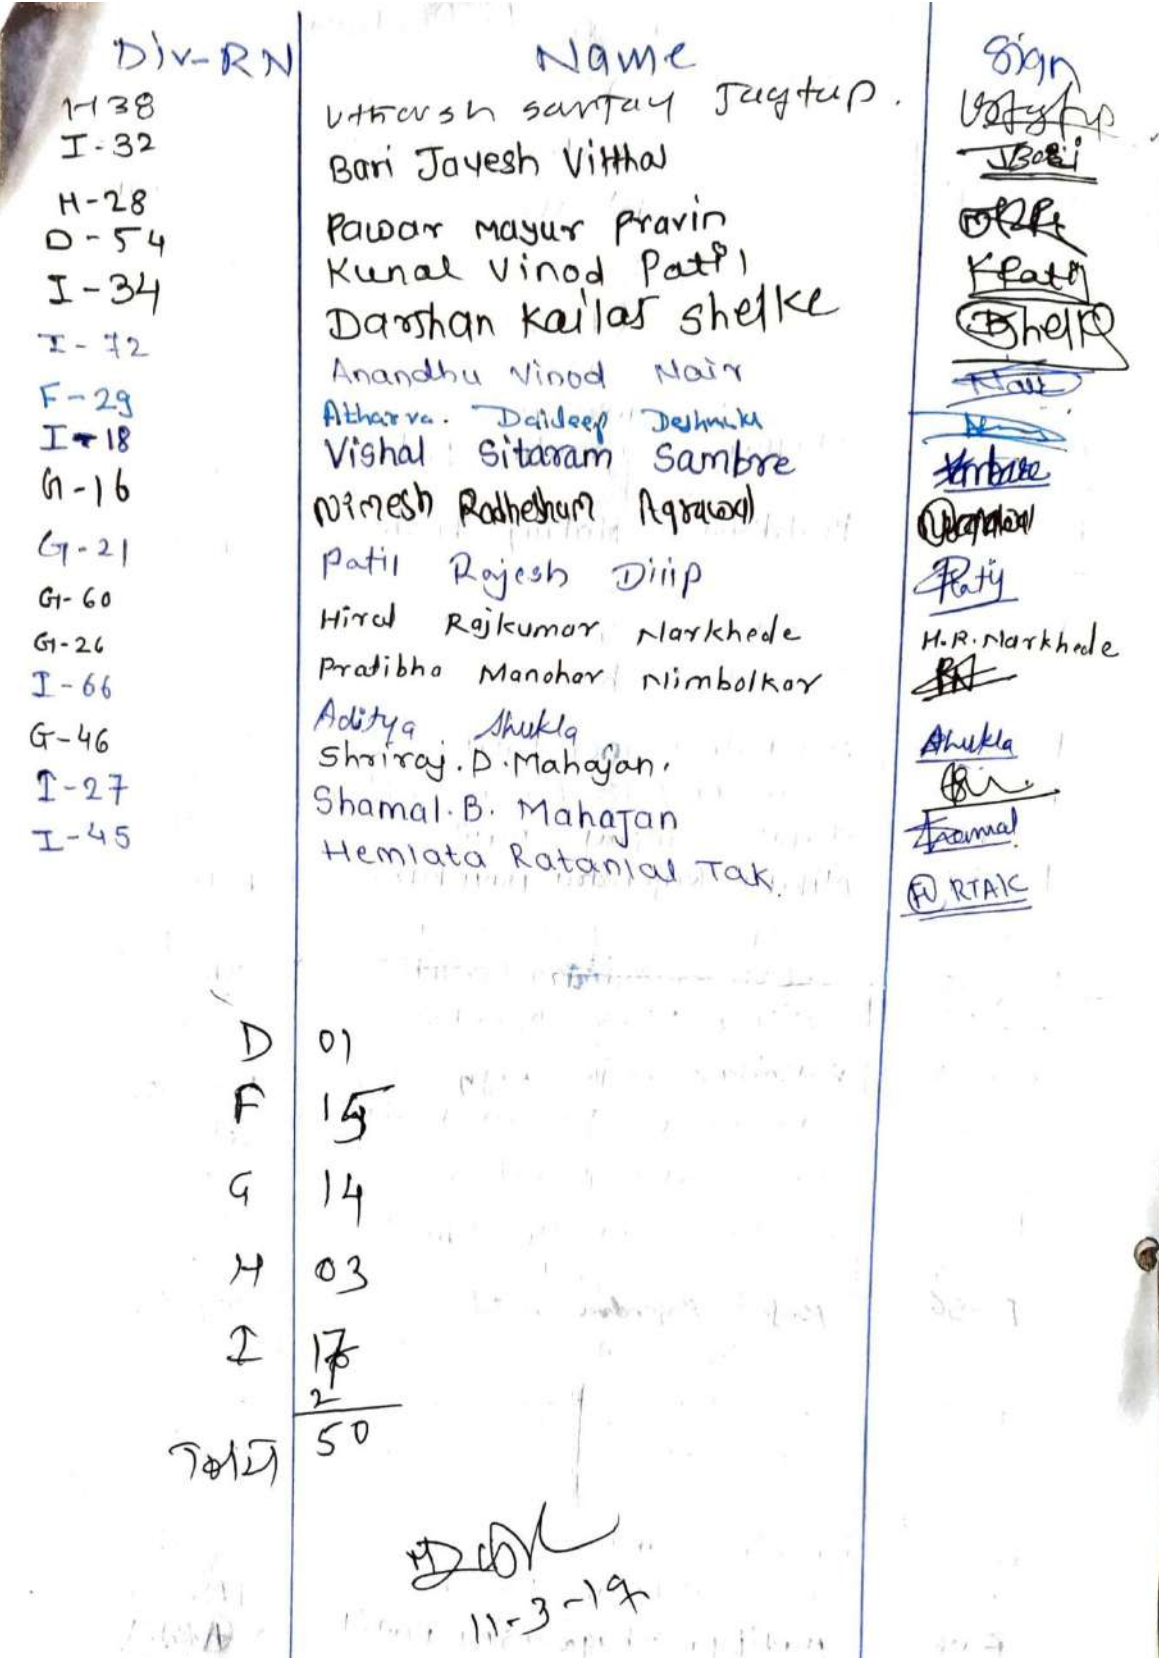 Div-RN Name Sign
H 38 Utkarsh sanjay Jagtap.
I-32 Bari Jayesh Vitthal JBari
H-28 Pawar mayur Pravin
D-54 Kunal Vinod Patil KPatil
I-34 Darshan Kailas Shelke DShelke
I-72 Anandhu Vinod Nair Nair
F-29 Atharva. Deshmukh
I-18 Vishal Sitaram Sambre
G-16 Nimesh Radhesham Agrawal
G-21 Patil Rajesh Dilip Patil
G-60 Hiral Rajkumar Narkhede H.R.Narkhede
G-26 Pratibha Manohar Nimbolkar
I-66 Aditya Shukla Shukla
G-46 Shriraj.D.Mahajan.
I-27 Shamal.B. Mahajan Shamal
I-45 Hemlata Ratanlal Tak. RTAK
D 01
F 15
G 14
H 03
I 17
2
Total 50
11-3-19